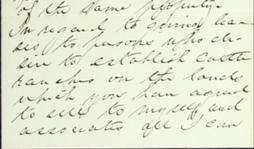 of the same property.
In regard to giving lea-
ses to persons who de-
sire to establish cattle
ranches on the lands
which you have agreed
to sell to myself and
associates all I can